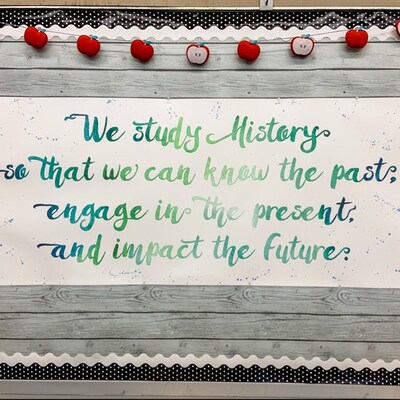 We study History
so that we can know the past,
engage in the present,
and impact the future.